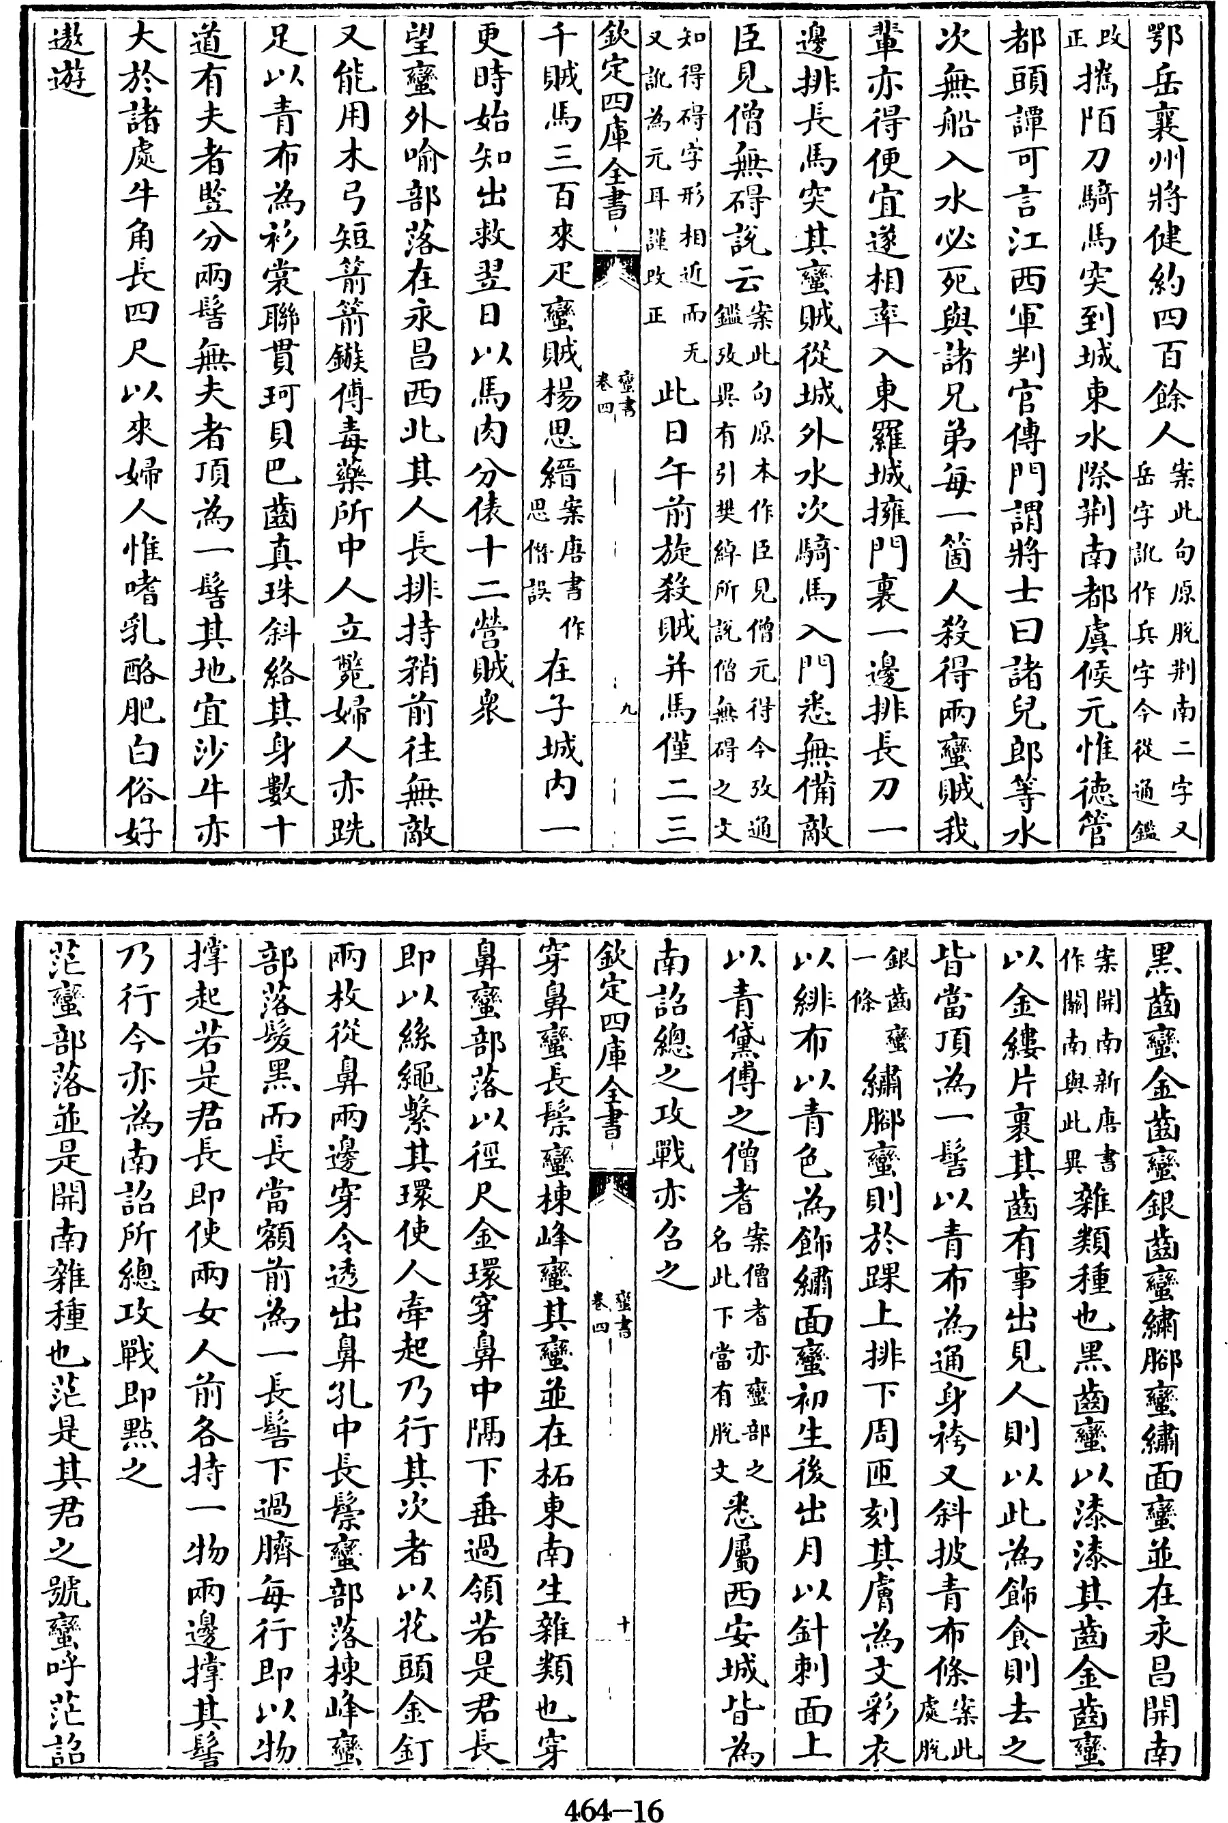 鄂岳襄州將健約四百餘人案此句原脫荆南二字又岳字訛作兵字今從通鑑
改正攜陌刀騎馬突到城東水際荆南都虞候元惟德管
都頭譚可言江西軍判官傅門謂將士曰諸兒郎等水
次無船入水必死與諸兄弟每一箇人殺得兩蠻賊我
輩亦得便宜遂相率入東羅城擁門裏一邊排長刀一
邊排長馬突其蠻賊從城外水次騎馬入門悉無備敵
臣見僧無碍說云案此句原本作臣見僧元得今攷通鑑攷異有引樊綽所説僧無碍之文
知得碍字形相近而无又訛為元耳謹改正此日午前旋殺賊并馬僅二三
欽定四庫全書
蠻書
卷四
九
千賊馬三百來疋蠻賊楊思縉案唐書作思僭誤在子城内一
更時始知出救翌日以馬肉分俵十二營賊衆
望蠻外喻部落在永昌西北其人長排持矟前往無敵
又能用木弓短箭箭鏃傅毒藥所中人立斃婦人亦跣
足以青布為衫裳聯貫珂貝巴齒真珠斜絡其身數十
道有夫者豎分兩髻無夫者頂為一髻其地宜沙牛亦
大於諸處牛角長四尺以來婦人惟嗜乳酪肥白俗好
遨遊
黑齒蠻金齒蠻銀齒蠻繡脚蠻繡面蠻並在永昌開南
案開南新唐書作關南與此異雜類種也黑齒蠻以漆漆其齒金齒蠻
以金縷片裹其齒有事出見人則以此為飾食則去之
皆當頂為一髻以青布為通身袴又斜披青布條案此處脫
銀齒蠻一條繡脚蠻則於踝上排下周匝刻其膚為文彩衣
以緋布以青色為飾繡面蠻初生後出月以針刺面上
以青黛傅之僧耆案僧耆亦蠻部之名此下當有脫文悉屬西安城皆為
南詔總之攻戰亦召之
欽定四庫全書
蠻書
卷四
十
穿鼻蠻長鬃蠻棟峰蠻其蠻並在柘東南生雜類也穿
鼻蠻部落以徑尺金環穿鼻中隔下垂過領若是君長
即以絲繩繫其環使人牽起乃行其次者以花頭金釘
兩枚從鼻兩邊穿令透出鼻孔中長鬃蠻部落棟峰蠻
部落髮黑而長當額前為一長髻下過臍每行即以物
撑起若是君長即使兩女人前各持一物兩邊撑其髻
乃行今亦為南詔所總攻戰即點之
茫蠻部落並是開南雜種也茫是其君之號蠻呼茫詔
464-16